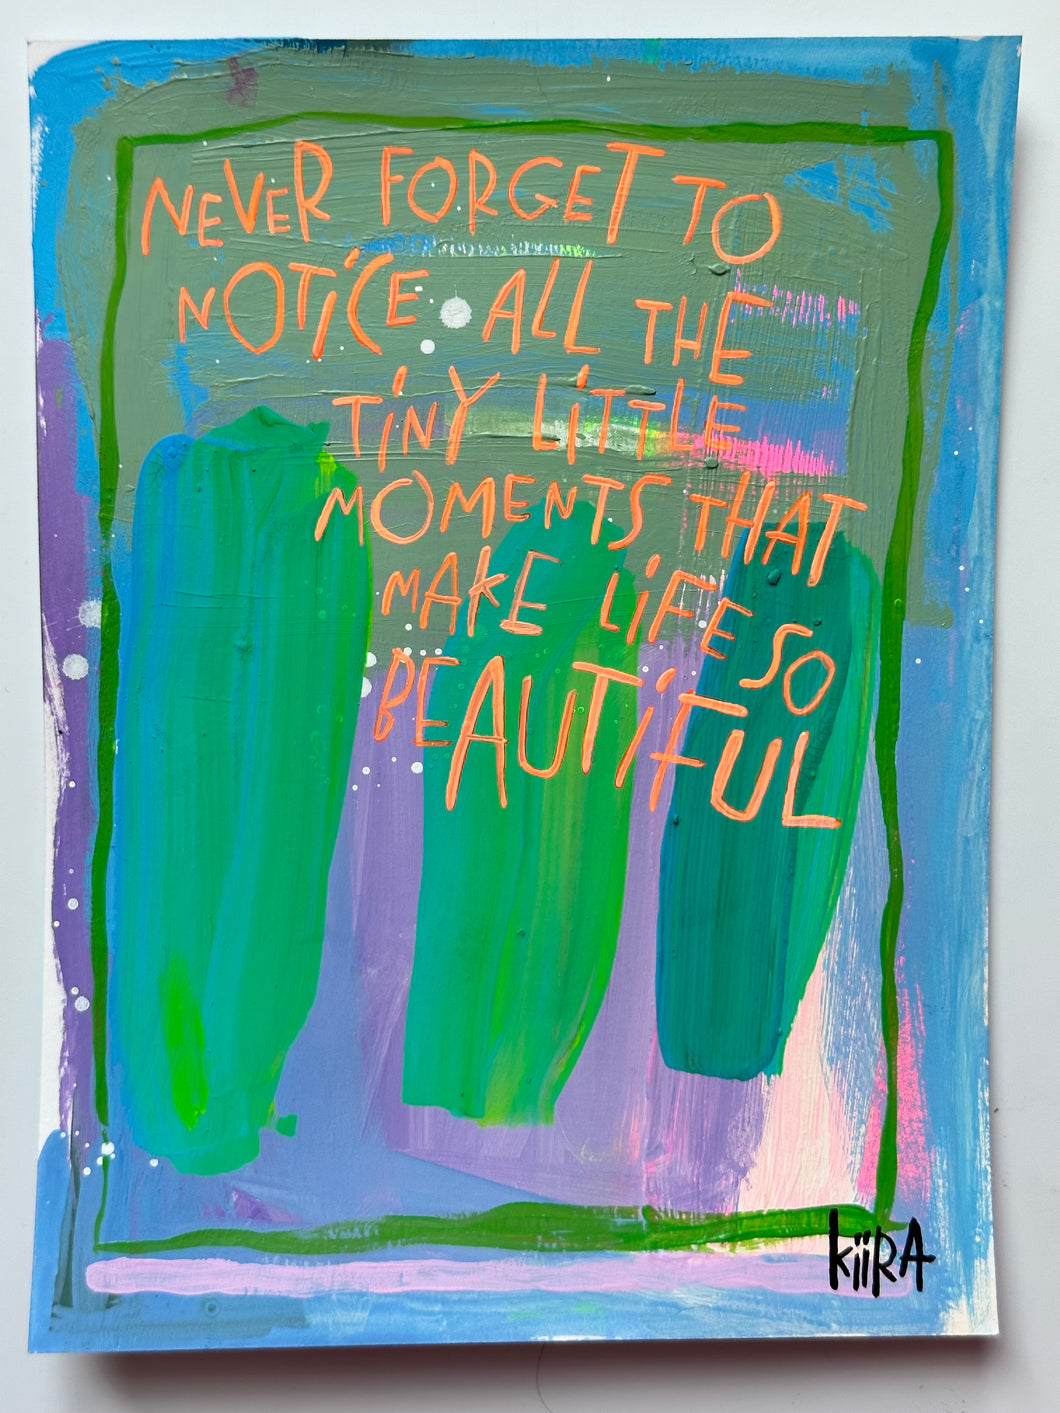 NEVER FORGET TO
NOTiCE ALL THE
TiNY LiTTLE
MOMENTS THAT
MAKE LiFE SO
BEAUTiFUL
kiiRA